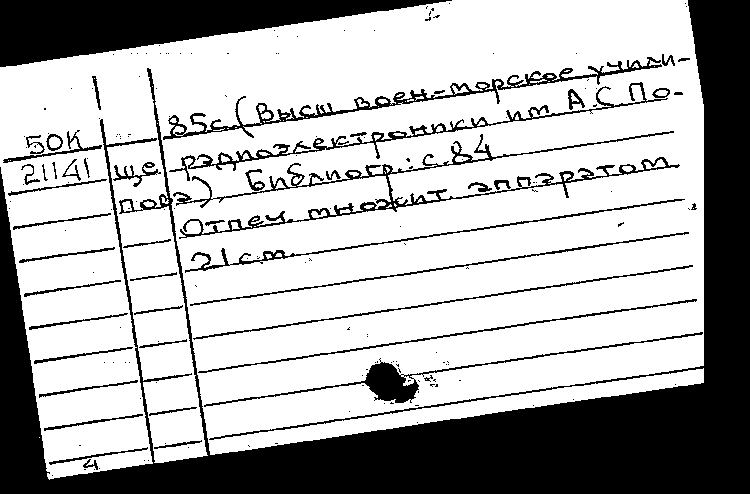 85с. (Высш. воен-морское учили-
50К
21141 ще радиоэлектроники им А С По-
пова). Библиогр.: с.84
Отпеч. множит. аппаратом
21 см.
4